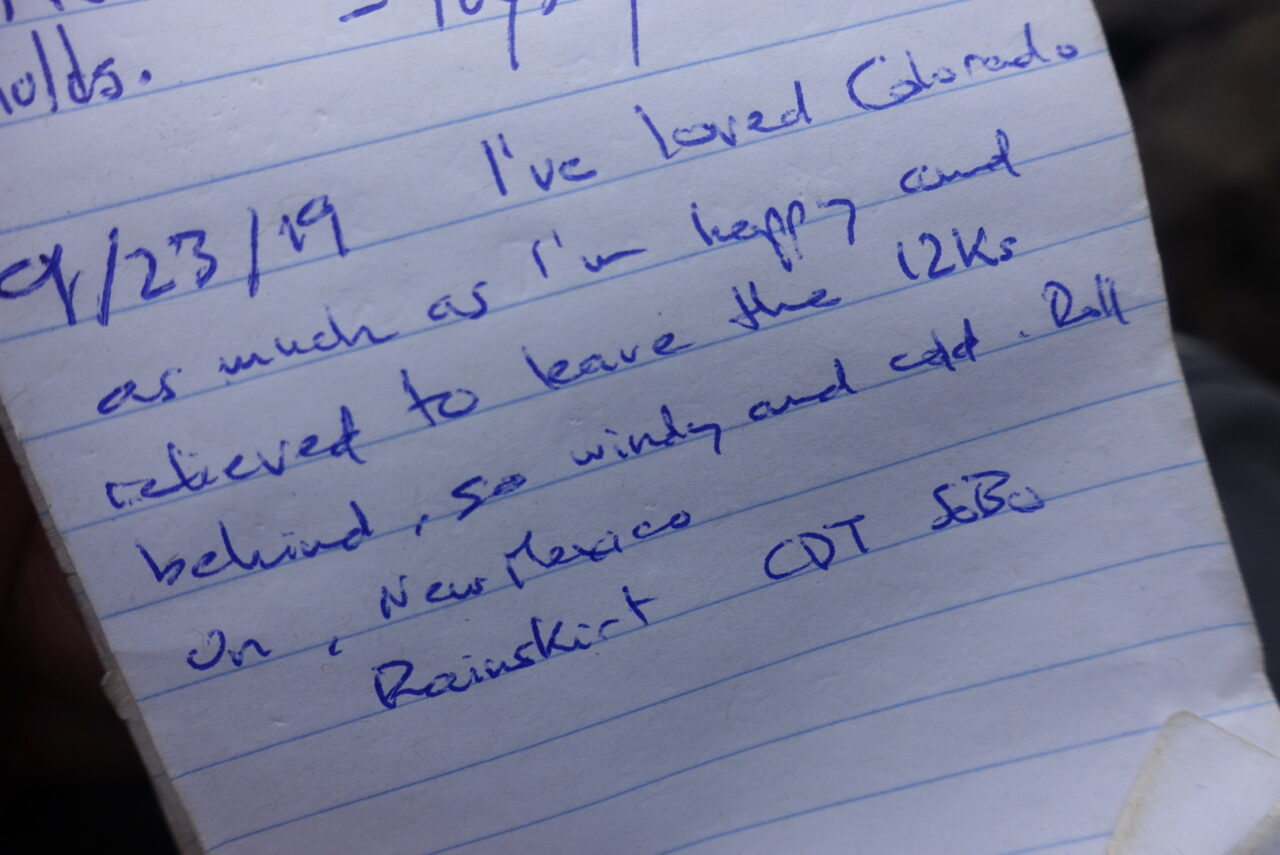 9/23/19 I've loved Colorado
as much as I'm happy and
relieved to leave the 12Ks
behind, so windy and cold. Roll
on, New Mexico
Rainskirt CDT SoBo